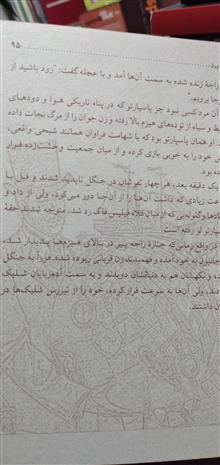 ۹۵
راجهٔ زنده شده به سمت آن‌ها آمد و با عجله گفت: "زود باشید از
برویم."
آن مرد کسی نبود جز پاسپارتو که در پناه تاریکی هوا و دودهای
و سیاه از توده‌های هیزم بالا رفته و زن جوان را از مرگ نجات داده
او همان پاسپارتو بود که با شهامت فراوان همانند شبحی واقعی،
خود را به خوبی بازی کرده و از میان جمعیت وحشت‌زده فرار
بود.
دقیقه بعد، هر چهار نفرشان در جنگل ناپدید شدند و فیل با
زیادی که داشت آن‌ها را از آن‌جا دور می‌کرد. ولی از داد و
و گلوله‌یی که از میان کلاه فیلیس فاگ رد شد، متوجه شدند حقهٔ
لو رفته است.
در واقع زمانی که جنازهٔ راجه پیر در بالای هیزم‌ها پدیدار شد،
به خود آمده و فهمیدند زن قربانی ربوده شده. فوراً به جنگل
و نگهبانان هم به دنبالشان دویدند و به سمت آدم‌ربایان شلیک
ولی آن‌ها به سرعت فرار کرده، خود را از تیررس شلیک‌ها در
داشتند.